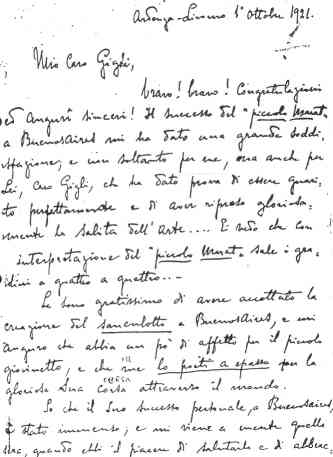 Ardenza-Livorno 1° Ottobre 1921.
Mio Caro Gigli,
bravo! bravo! Congratulazioni
ed auguri sinceri! Il successo del "piccolo Marat"
a BuenosAires mi ha dato una grande soddi-
sfazione, e non soltanto per me, ma anche per
Lei, Caro Gigli, che ha dato prova di essere guari-
to perfettamente e di aver ripreso gloriosa-
mente la salita dell'Arte.... E vedo che con
interpretazione del "piccolo Marat" sale i gra-
dini a quattro a quattro...
Le sono gratissimo di avere accettato la
creazione del sanculotto a BuenosAires, e mi
auguro che abbia un pò di affetto per il piccolo
giovinetto, e che lo porti a spasso per la
gloriosa Sua corsa attraverso il mondo.
So che il Suo successo personale, a BuenosAires,
è stato immenso; e mi viene a mente quella
sera, quando ebbi il piacere di salutarla e di